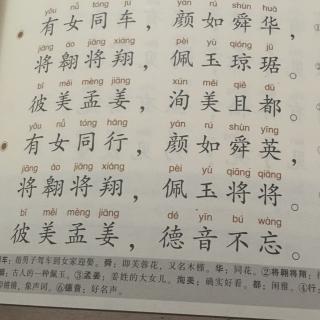 yǒu nǚ tóng jū yán rú shùn huā
有女同车，颜如舜华，
jiāng áo jiāng xiáng pèi yù qióng jū
将翱将翔，佩玉琼琚。
bǐ měi mèng jiāng xún měi dū
彼美孟姜，洵美且都。
yǒu nǚ tóng háng yán rú shùn yīng
有女同行，颜如舜英，
jiāng áo jiāng xiáng pèi yù qiāng qiāng
将翱将翔，佩玉将将。
bǐ měi mèng jiāng dé yīn bú wàng
彼美孟姜，德音不忘。
车：指男子驾车到女家迎娶。舜：即芙蓉花，又名木槿。华：同花。②将翱将翔：
古人的一种佩玉。③孟姜：姜姓的大女儿。洵美：确实好看。都：闲雅。④行：
象声词。⑥德音：好名声。